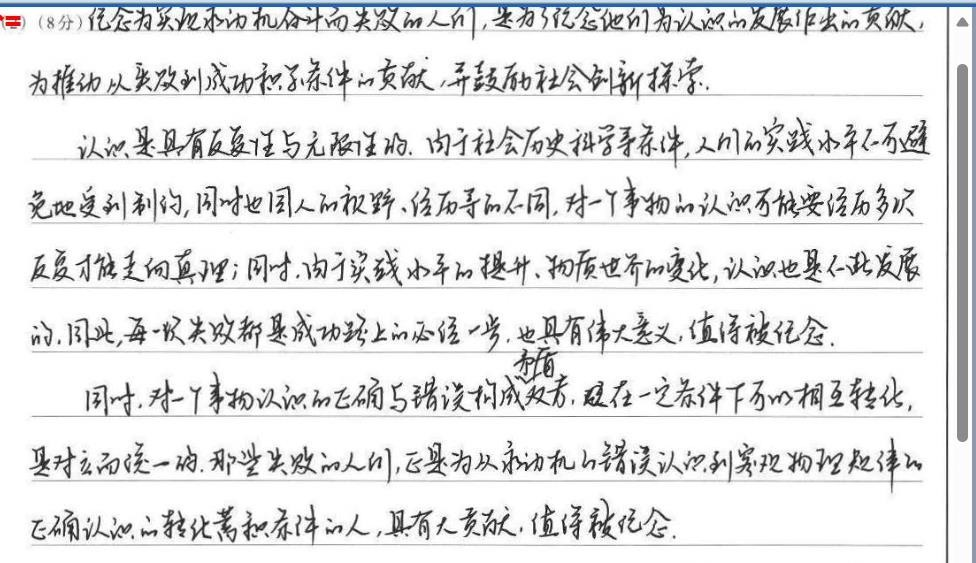 (8分) 纪念为实现永动机奋斗而失败的人们,是为了纪念他们为认识的发展作出的贡献,
为推动从失败到成功积累条件的贡献,并鼓励社会创新探索.
认识是具有反复性与无限性的.由于社会历史科学等条件,人们的实践水平不可避
免地受到制约,同时也因人的视野、经历等的不同,对一个事物的认识可能要经历多次
反复才能走向真理;同时,由于实践水平的提升、物质世界的变化,认识也是不断发展
的.因此,每一次失败都是成功路上的必经一步,也具有伟大意义,值得被纪念.
同时,对一个事物认识的正确与错误构成矛盾双方,既在一定条件下可以相互转化,
是对立而统一的.那些失败的人们,正是为从永动机的错误认识到客观物理规律的
正确认识的转化蓄积条件的人,具有大贡献,值得被纪念.